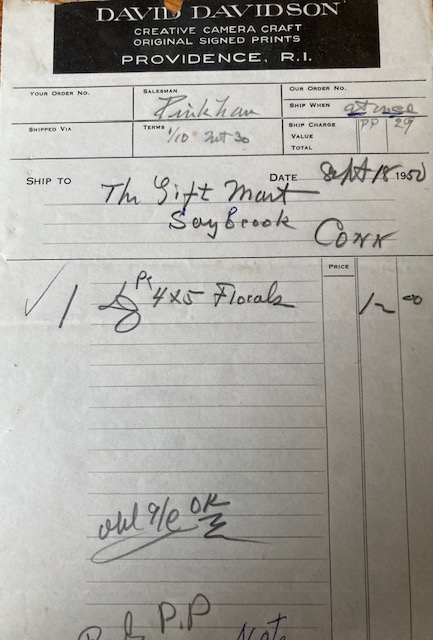 DAVID DAVIDSON
CREATIVE CAMERA CRAFT
ORIGINAL SIGNED PRINTS
PROVIDENCE, R.I.
YOUR ORDER NO.
SALESMAN
Pinkham
OUR ORDER NO.
SHIP WHEN at once
SHIPPED VIA
TERMS 1/10 net 30
SHIP CHARGE PP 29
VALUE
TOTAL
SHIP TO The Gift Mart
DATE Sept 18 1950
Saybrook
Conn
PRICE
1 4x5 Florals 12 00
OK
P.P
Note